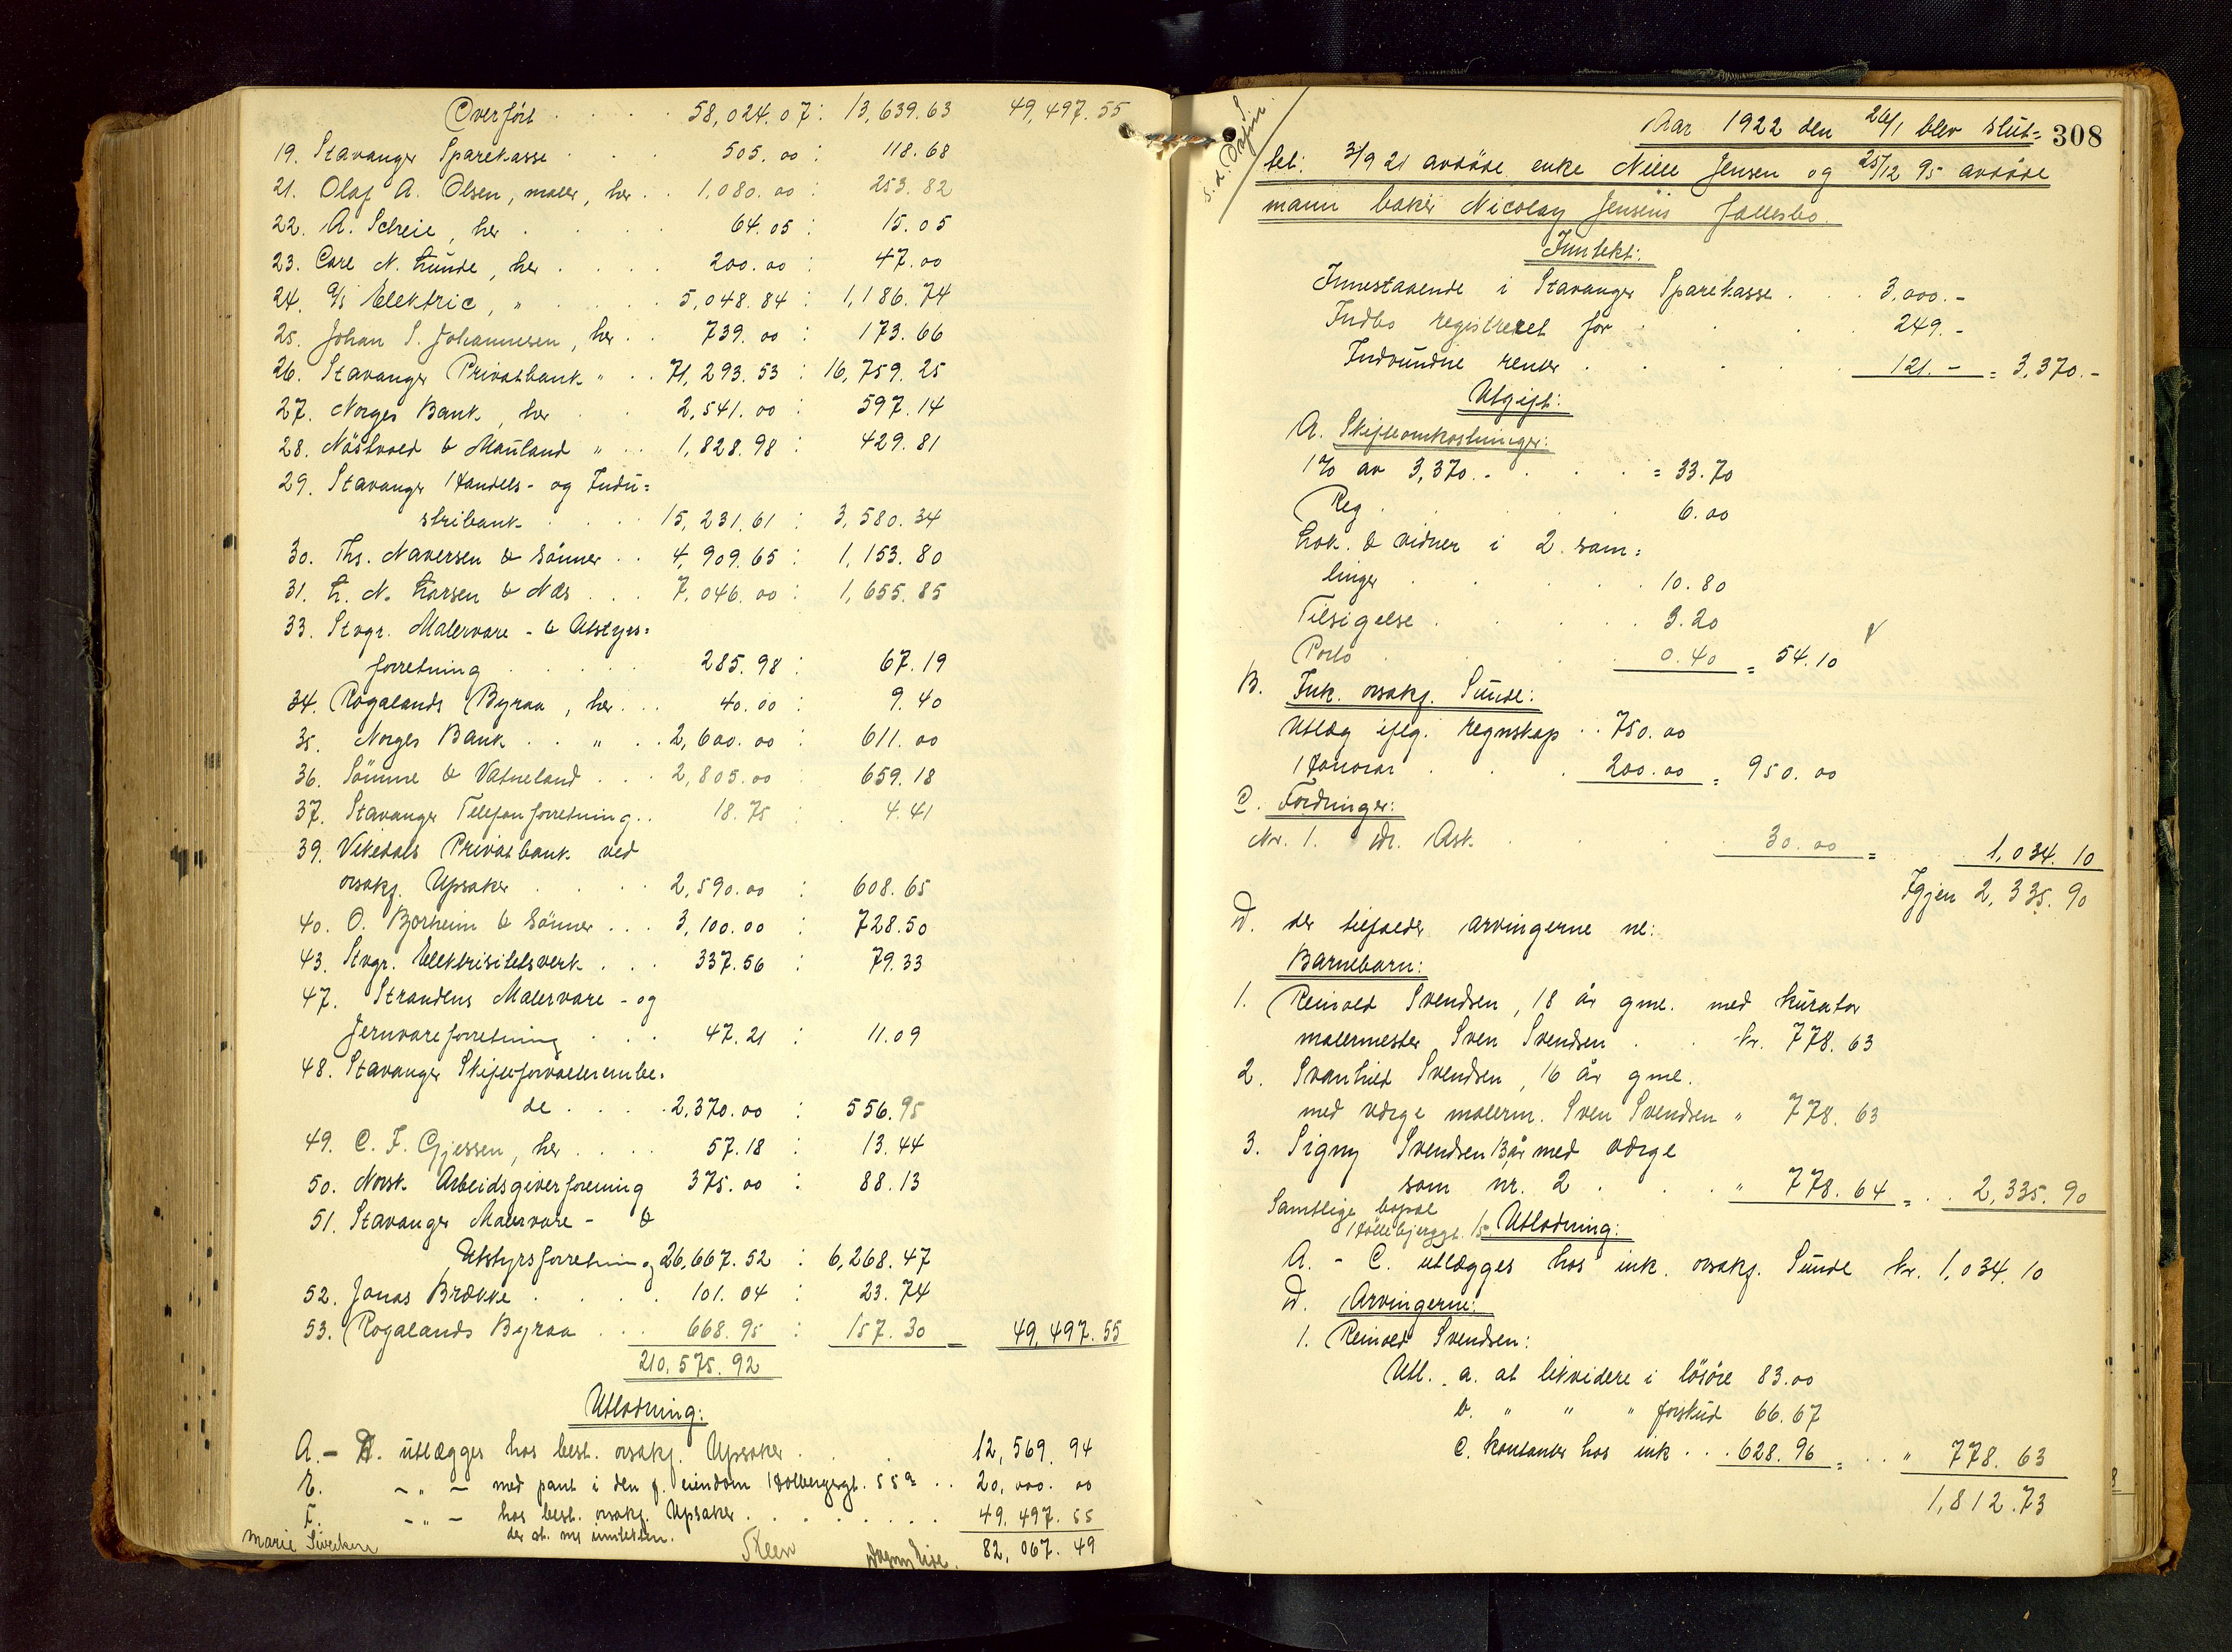 Overført . . . . 58,024.07 : 13,639.63 49,497.55
19. Stavanger Sparekasse . . . 505.00 : 118.68
21. Olaf A. Olsen, maler, her . . 1,080.00 : 253.82
22. A. Scheie, her . . . . 64.05 : 15.05
23. Carl N. Lunde, her . . . . 200.00 : 47.00
24. A/S Elektric, " . . . . 5,048.84 : 1,186.74
25. Johan S. Johannesen, her . . 739.00 : 173.66
26. Stavanger Privatbank " . . 71,293.53 : 16,759.25
27. Norges Bank, her . . 2,541.00 : 597.14
28. Nöstvold & Mauland " . . 1,828.98 : 429.81
29. Stavanger Handels- og Indu=
stribank . . . . 15,231.61 : 3,580.34
30. Ths. Naversen & Sønner . . 4,909.65 : 1,153.80
31. L. N. Larsen & Næs . . . 7,046.00 : 1,655.85
33. Stvgr. Malervare- & Utstyrs=
forretning . . . . . 285.98 : 67.19
34. Rogalands Byraa, her . . . 40.00 : 9.40
35. Norges Bank . . " . . 2,600.00 : 611.00
36. Sömme & Vatneland . . . 2,805.00 659.18
37. Stavanger Telefonforretning . . 18.75 . . 4.41
39. Vikedals Privatbank ved
orsakf. Upsaker . . . . 2,590.00 : 608.65
40. O. Bjorheim & Sönner . . . 3,100.00 : 728.50
43. Stvgr. Elektrisitetsverk . . . 337.56 : 79.33
47. Strandens Malervare- og
Jernvareforretning . . . 47.21 : 11.09
48. Stavanger Skifteforvalterembe=
de . . . . 2,370.00 : 556.95
49. C. F. Gjessen, her . . . . 57.18 : 13.44
50. Norsk Arbeidsgiverforening 375.00 : 88.13
51. Stavanger Malervare- &
Utstyrsforretning 26,667.52 : 6,268.47
52. Jonas Brække . . . . 101.04 : 23.74
53. Rogalands Byraa . . . 668.95 : 157.30 = 49,497.55
210,575.92
Utlodning:
A. - D. utlægges hos best. orsakf. Upsaker . . . 12,569.94
E. - " - med pant i den f. eiendom Holbergsgt. 55a . . 20,000.00
F. - " - hos best. orsakf. Upsaker . . . . . . . 49,497.55
82,067.49
308
Aar 1922 den 26/1 blev slut=
tet: 3/9 21 avdöde enke Nille Jensen og 25/12 95 avdöde
mann baker Nicolay Jensens fællesbo.
Inntekt:
Innestaaende i Stavanger Sparekasse . . . 3,000.-
Indbo registreret for . . . . 249.-
Indvundne renter . . . . . 121.- = 3,370.-
Utgift:
A. Skifteomkostninger:
1% av 3,370.- . . . . = 33.70
Reg . . . . . 6.00
Lok. & vidner i 2. sam=
linger . . . . . 10.80
Tilsigelse . . . . . 3.20
Porto . . . . 0.40 = 54.10
B. Ink. orsakf. Sunde:
Utlæg iflg. regnskap . . 750.00
Honorar . . . . 200.00 = 950.00
C. Fordringer:
Nr. 1. Dr. Ask . . . . 30.00 = . . 1,034.10
Igjen 2,335.90
D. der tilfalder arvingerne nl:
Barnebarn:
1. Reinold Svendsen, 18 år gml. med kurator
malermester Sven Svendsen . . kr. 778.63
2. Svanhild Svendsen, 16 år gml.
med værge malerm. Sven Svendsen " 778.63
3. Signy Svendsen 13 år med værge
som nr. 2 . . . . " 778.64 = . . 2,335.90
Samtlige bopæl
Utlodning:
A. - C. utlægges hos ink. orsakf. Sunde kr. 1,034.10
D. Arvingerne:
1. Reinold Svendsen:
Utl. a. at likvidere i lösöre 83.00
b. " " " forskud 66.67
c. kontanter hos ink . . . 628.96 = . . " 778.63
1,812.73